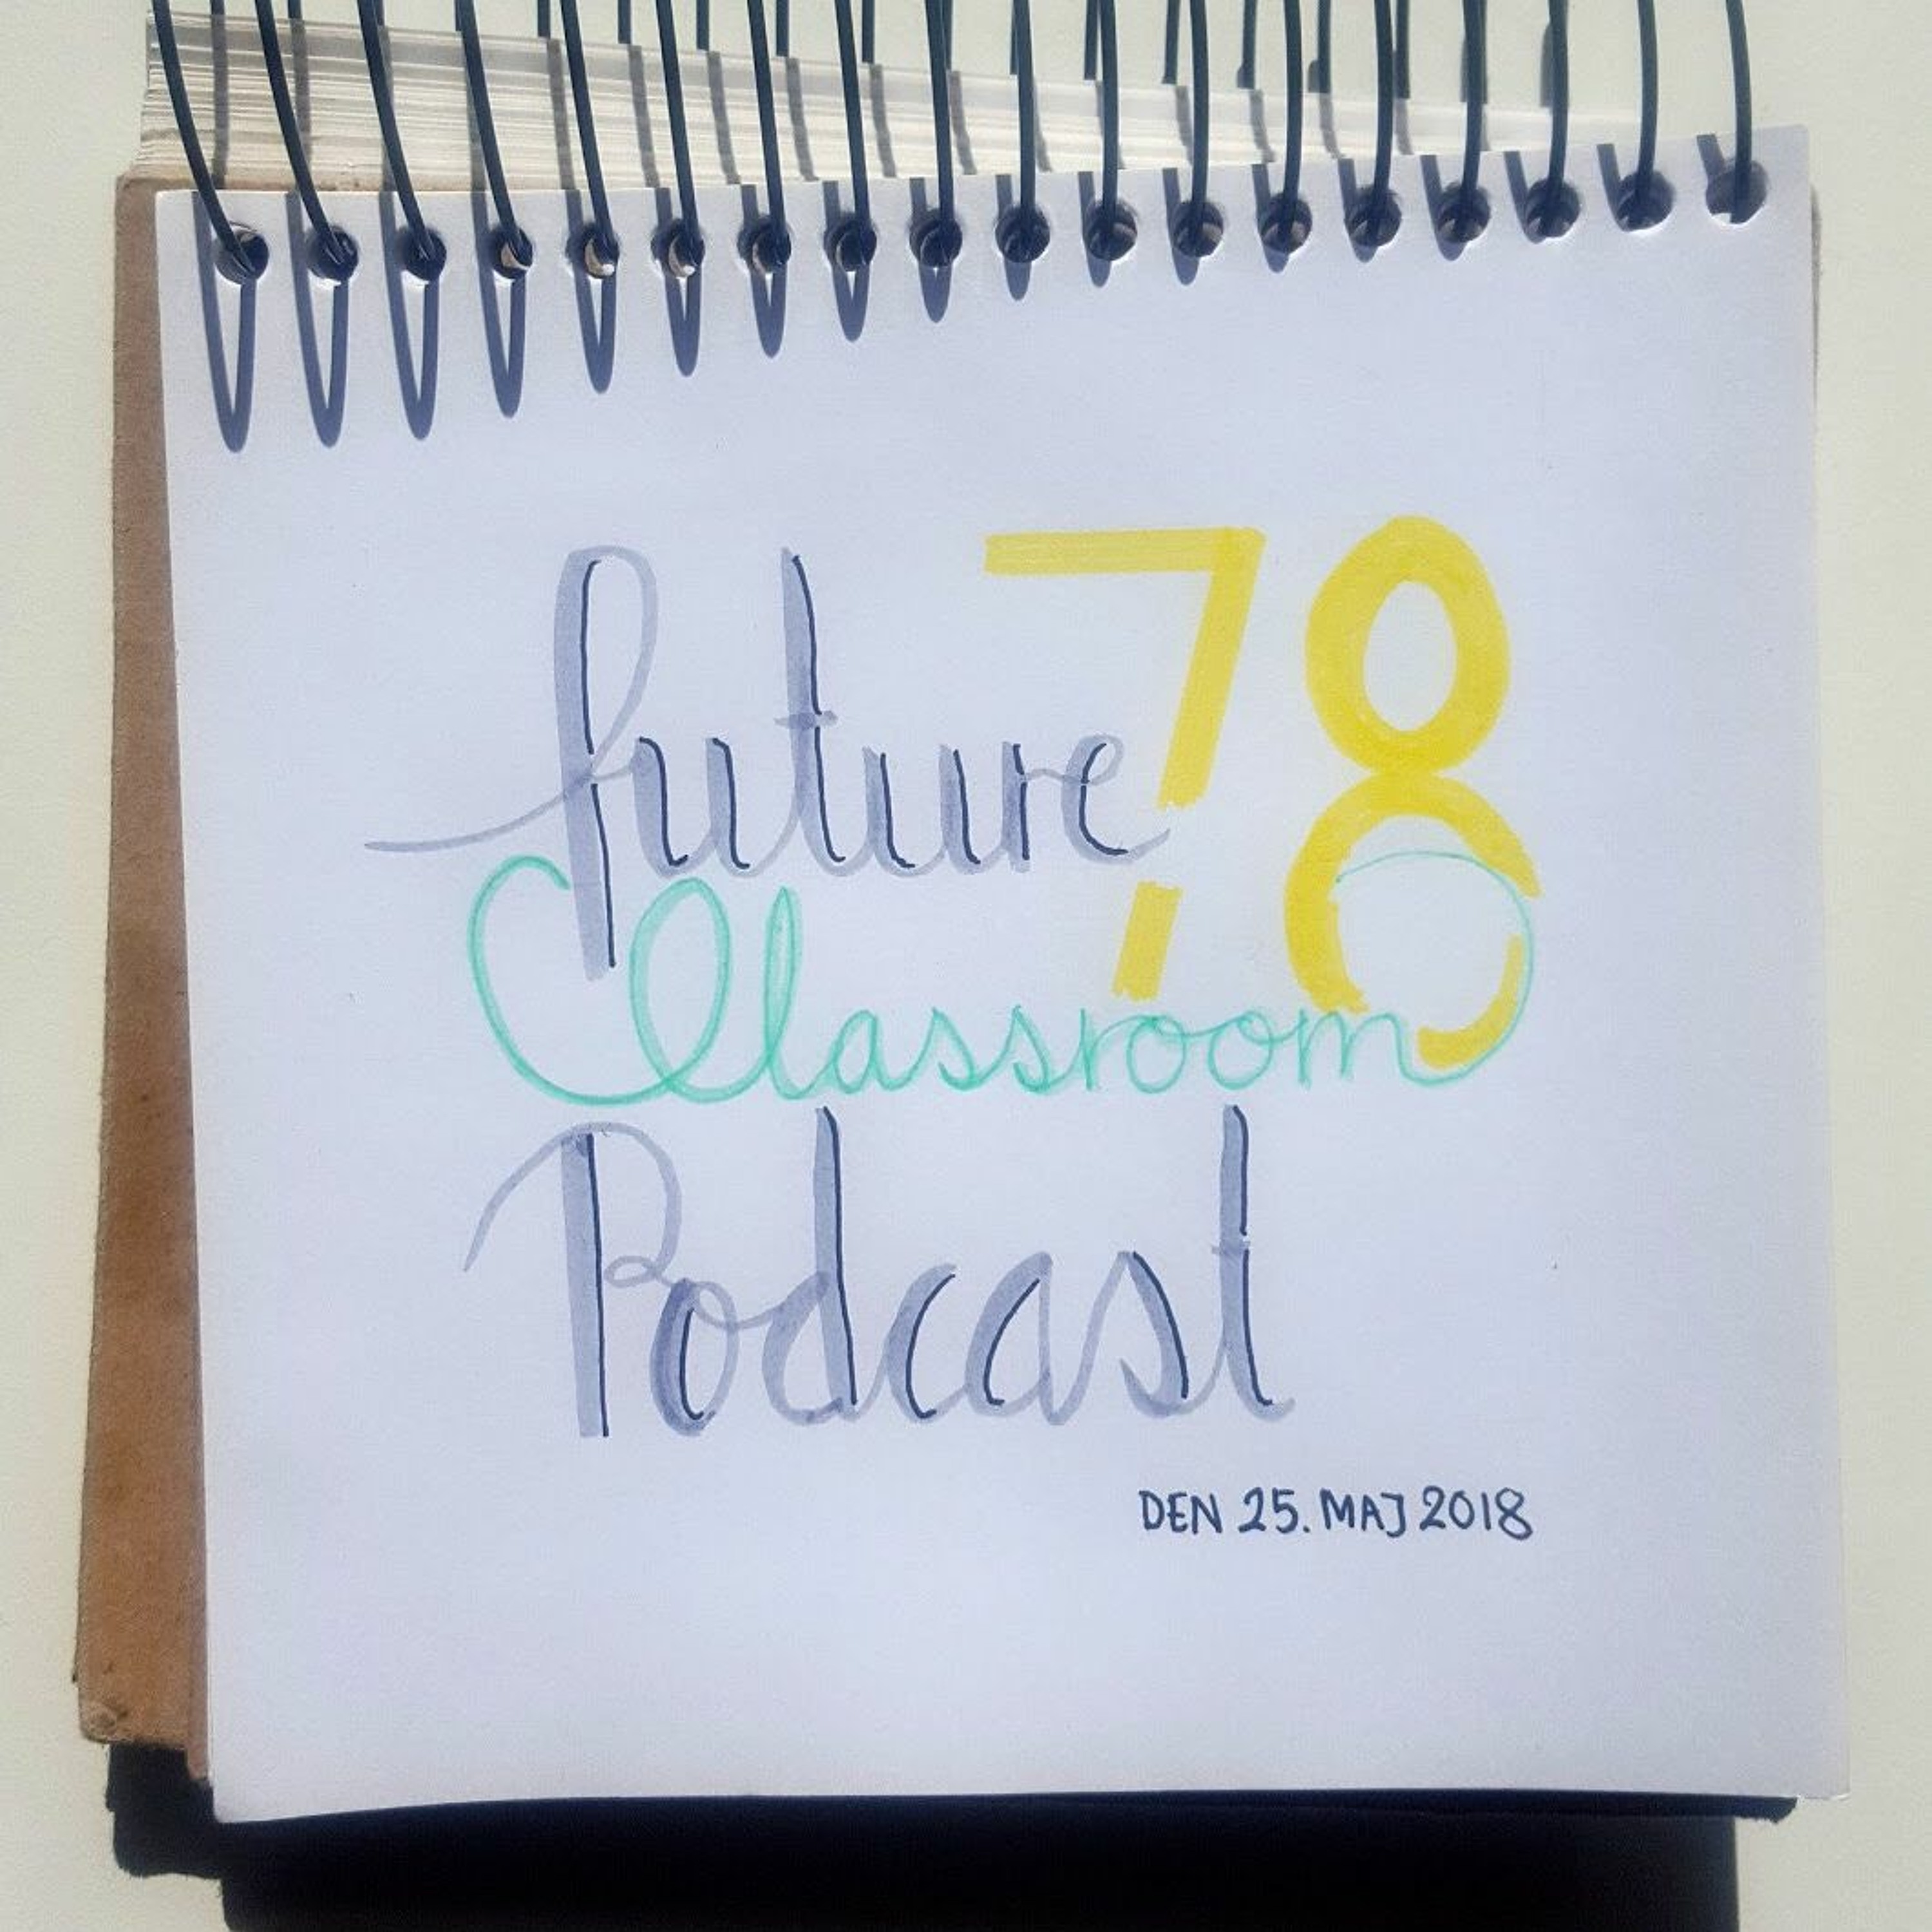 future 78
Classroom
Podcast
DEN 25. MAJ 2018